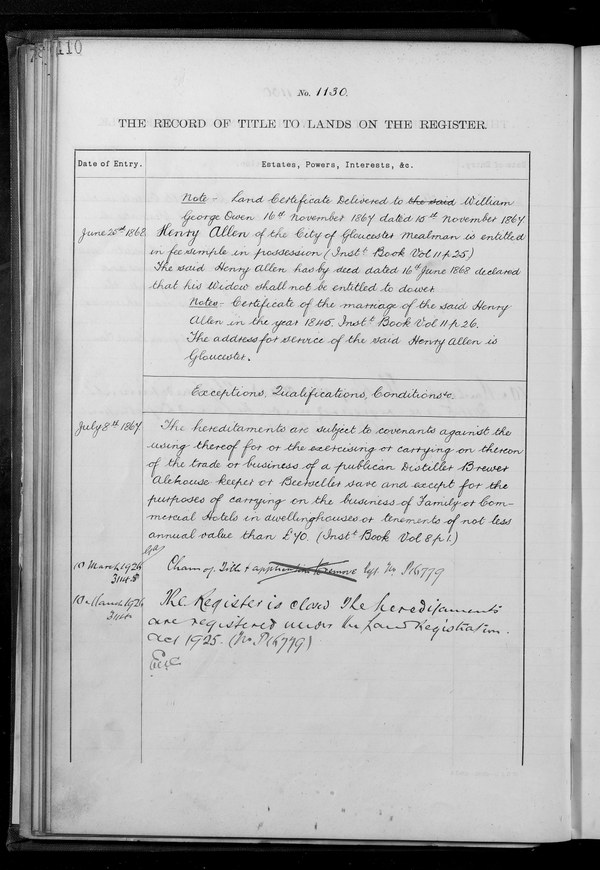 410
No. 1130.
THE RECORD OF TITLE TO LANDS ON THE REGISTER.
Date of Entry. Estates, Powers, Interests, &c.
Note - Land Certificate Delivered to the said William
George Owen 16th November 1867 dated 15th November 1867
June 22nd 1868 Henry Allen of the City of Gloucester Mealman is entitled
in fee simple in possession (Instt Book Vol 11 p. 25)
The said Henry Allen has by deed dated 16th June 1868 declared
that his Widow shall not be entitled to dower
Notes - Certificate of the marriage of the said Henry
Allen in the year 1845. Instt Book Vol 11 p. 26.
The address for service of the said Henry Allen is
Gloucester.
Exceptions, Qualifications, Conditions &c.
July 8th 1867 The hereditaments are subject to covenants against the
using thereof for or the exercising or carrying on thereon
of the trade or business of a publican Distiller Brewer
Alehouse keeper or Beerseller save and except for the
purposes of carrying on the business of Family or Com-
mercial Hotels in dwellinghouses or tenements of not less
annual value than £70. (Instt Book Vol 8 p 1.)
10 March 1926 Title & application to remove No P16779
10 March 1926 The Register is closed The hereditaments
are registered under the Land Registration
Act 1925. (No P16779)